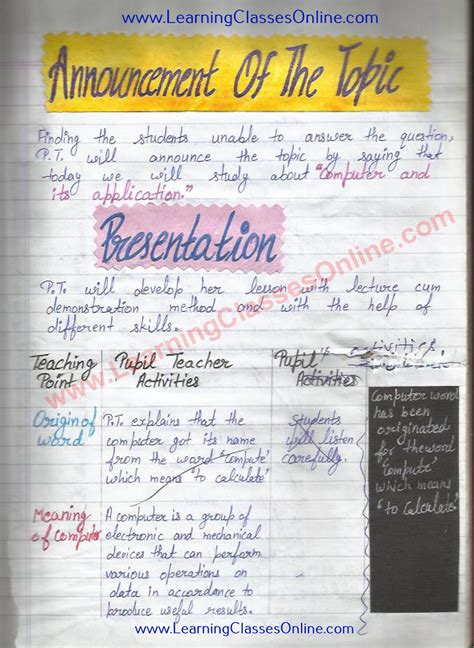 www.LearningClassesOnline.com
Announcement Of The Topic
Finding the students unable to answer the question,
P.T. will announce the topic by saying that
today we will study about "Computer and
its application."
Presentation
P.T. will develop her lesson with lecture cum
demonstration method and with the help of
different skills.
www.LearningClassesOnline.com
Teaching Point
Pupil Teacher Activities
Pupil's activities
Activities
Origin of word
P.T. explains that the
computer got its name
from the word 'compute'
which means 'to calculate'
Students
will listen
carefully.
Computer word
has been
originated
for the word
'compute'
which means
'to calculate'
Meaning of Computer
A computer is a group of
electronic and mechanical
devices that can perform
various operations on
data in accordance to
produce useful results.
www.LearningClassesOnline.com